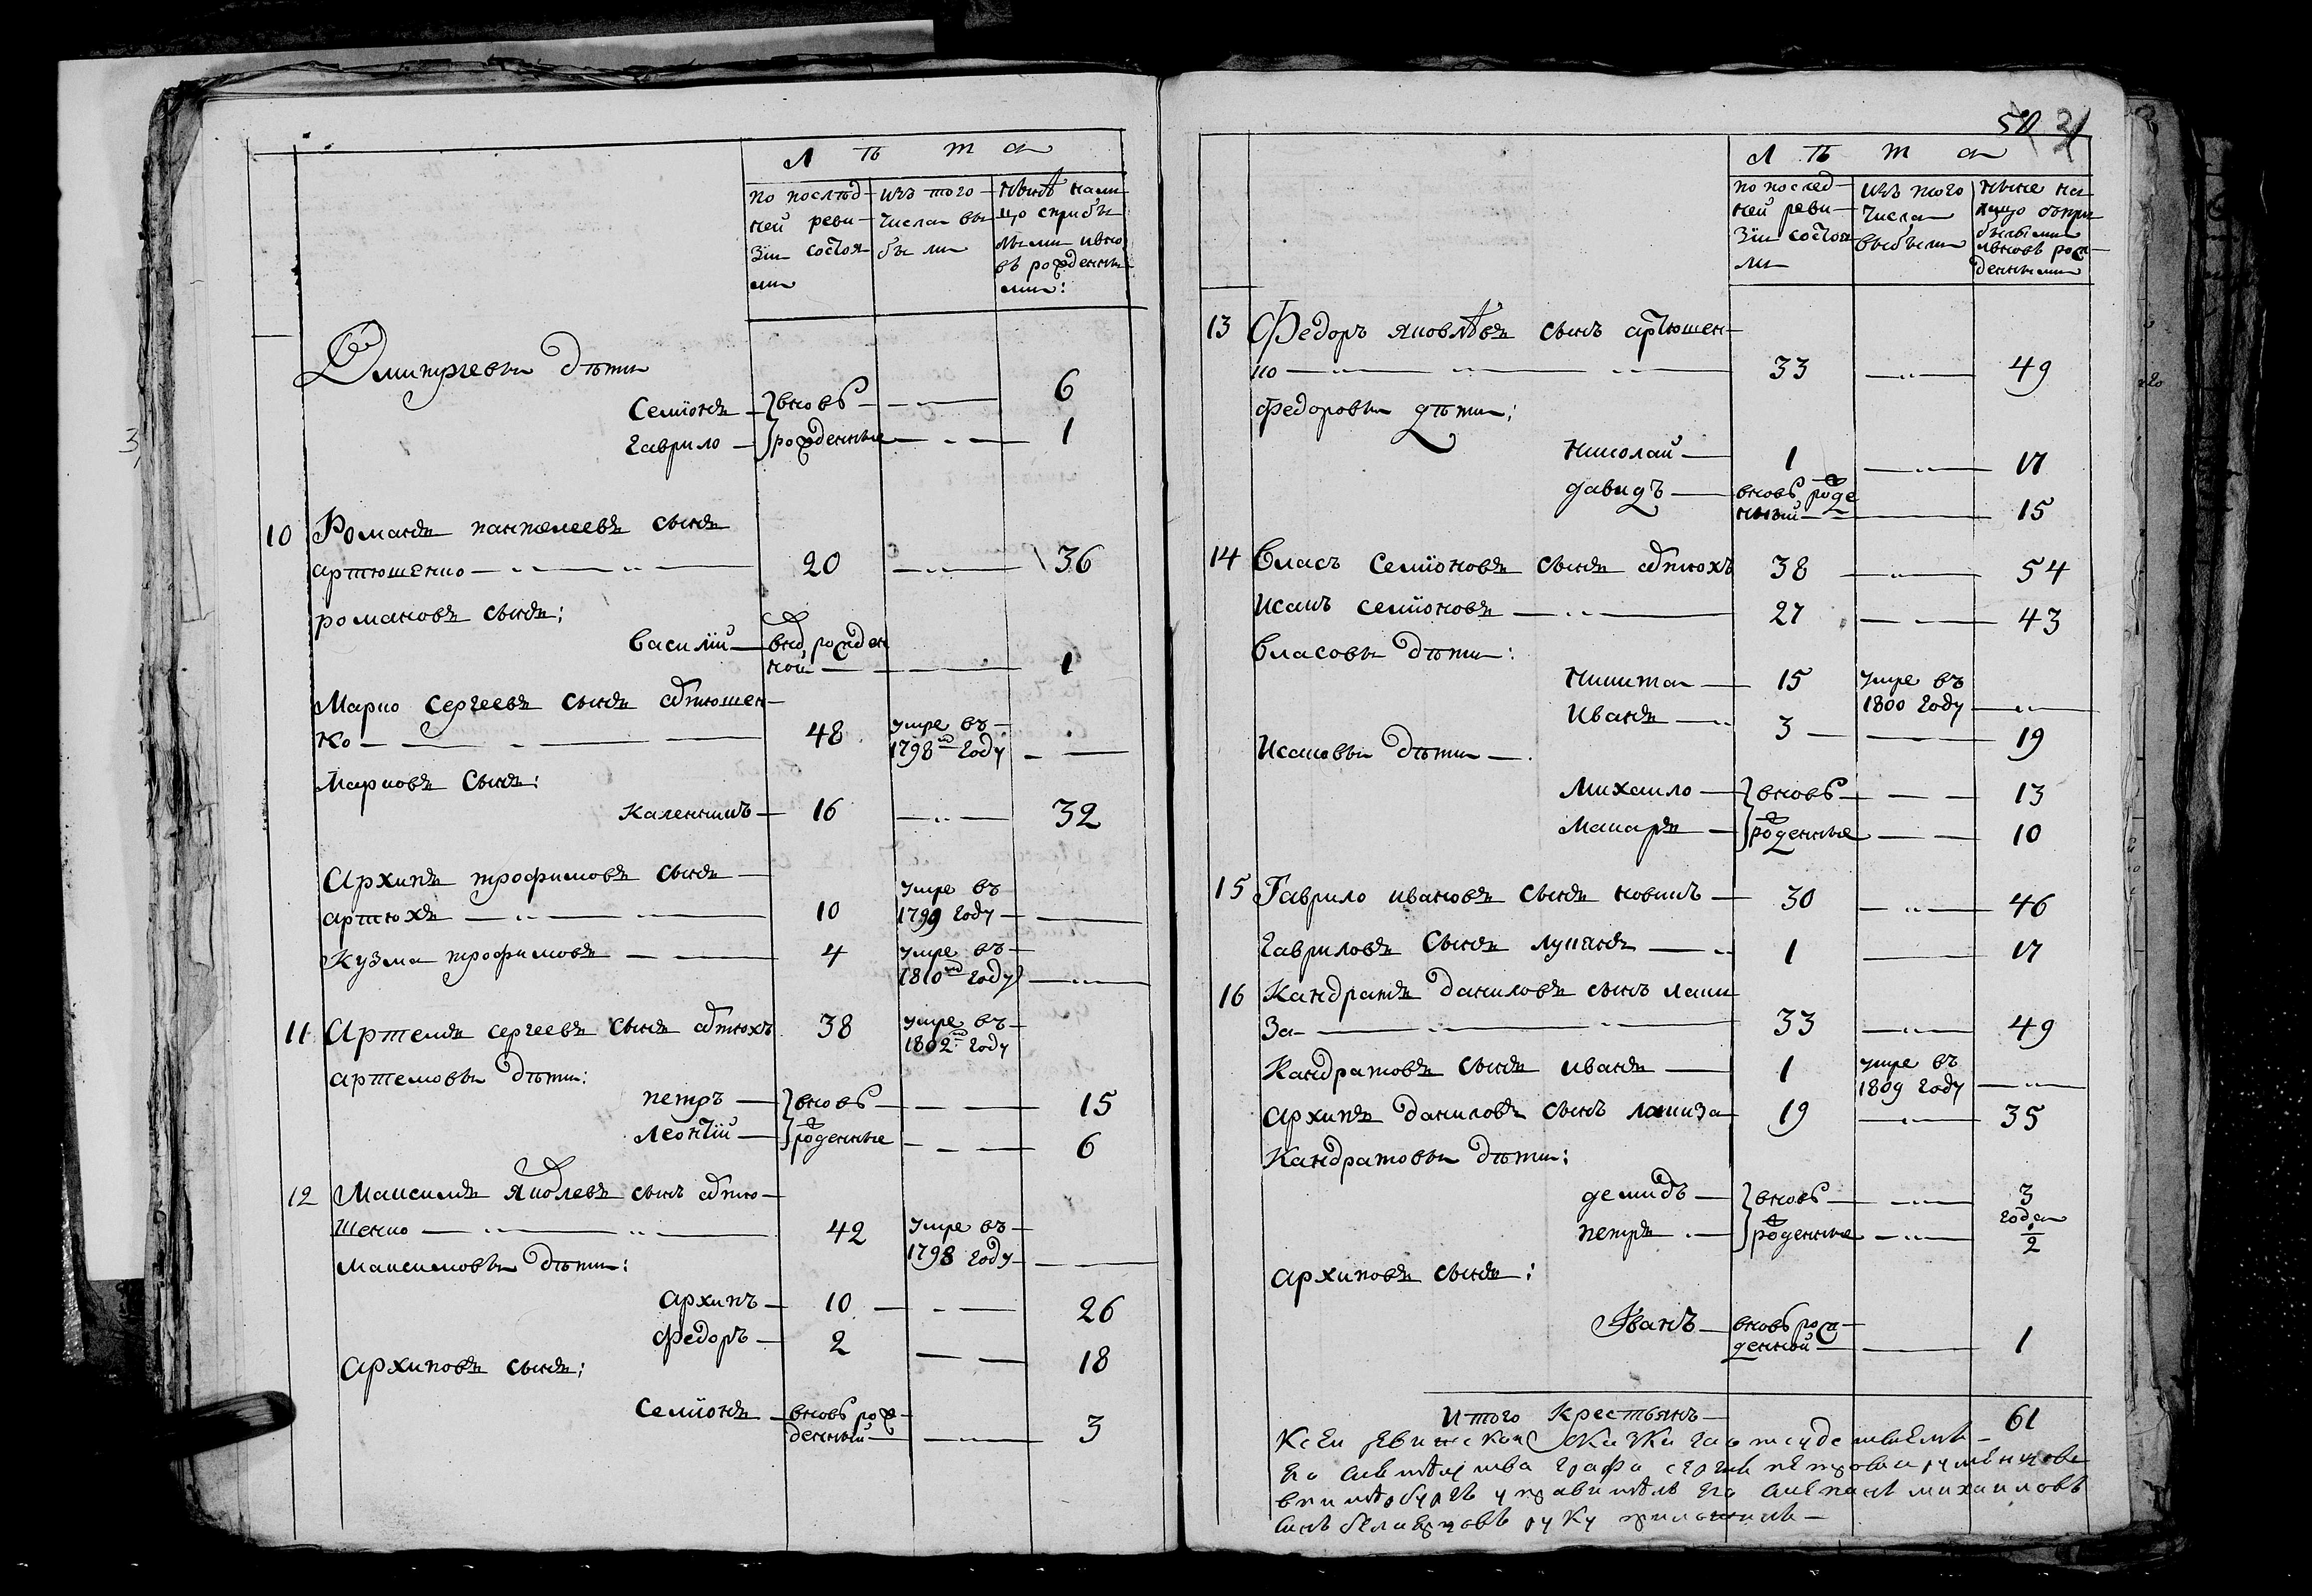 Л ѣ т а
по послѣд
ней реви
зіи состоя
ли
изъ того
числа вы
были
нынѣ нали
цо с прибы
лыми и вно
вь рожденны
ми:
Дмитріевы дѣти
Семіонъ вновь 6
Гаврило рожденные 1
10 Романъ пантелеевъ сынъ
артюшенко 20 36
романовъ сынъ:
Василій вно рожден
ной 1
Марко Сергеевъ сынъ артюшен
ко 48 умре въ
1798 году
Марковъ Сынъ:
Каленикъ 16 32
Архипъ трофимовъ сынъ
артюхъ 10 умре въ
1799 году
Кузма трофимовъ 4 умре въ
1810 году
11 Артемъ сергеевъ сынъ артюхъ 38 умре въ
1802 году
артемовы дѣти:
петръ вновь 15
леонтій рожденные 6
12 Максимъ яковлевъ сынъ артю
шенко 42 умре въ
1798 году
Максимовы дѣти:
архипъ 10 26
Федоръ 2 18
архиповъ сынъ:
Семіонъ вновь рож
денный 3
31
Л ѣ т а
по послед
ней реви
зіи состоя
ли
изъ того
числа
выбыли
ныне на
лицо съ при
былыми
и вновь рож
денными
13 Федоръ яковлѣвъ сынъ артюшен
ко 33 49
Федоровы дѣти:
Николай 1 17
давидъ вновь рожде
нный 15
14 Власъ Семіоновъ сынъ артюхъ 38 54
Исакъ семіоновъ 27 43
Власовы дѣти:
Никита 15 умре въ
1800 году
Иванъ 3 19
Исаковы дѣти
Михаило вновь 13
Макаръ рожденные 10
15 Гаврило ивановъ сынъ новикъ 30 46
гавриловъ Сынъ лукянъ 1 17
16 Кандратъ даниловъ сынъ лаки
за 33 49
Кандратовъ сынъ иванъ 1 умре въ
1809 году
архипъ даниловъ сынъ лакиза 19 35
Кандратовы дѣти:
демидъ вновь 3
года
петръ рожденные 1/2
архиповъ сынъ:
Іванъ вновь рож
денный 1
Итого крестьянъ 61
Ксеи ревиской Скизки
его графа сергия петровича румянцова
управитель его михаиловъ
синъ руку приложилъ